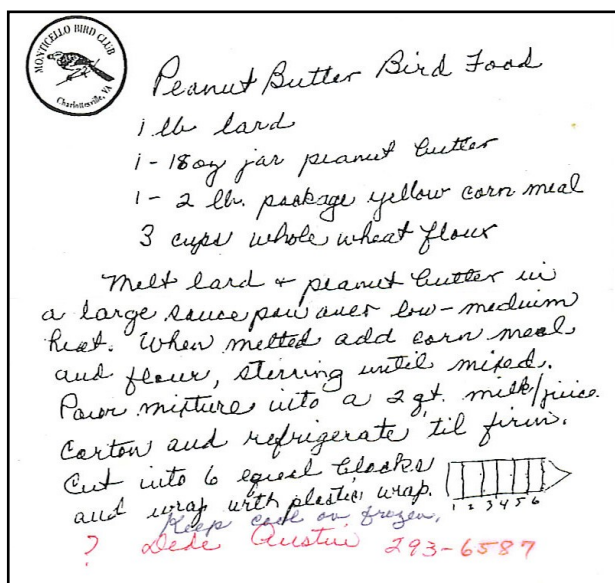 MONTICELLO BIRD CLUB
Charlottesville, VA
Peanut Butter Bird Food
1 lb lard
1 - 18 oz jar peanut butter
1 - 2 lb. package yellow corn meal
3 cups whole wheat flour
Melt lard + peanut butter in
a large sauce pan over low-medium
heat. When melted add corn meal
and flour, stirring until mixed.
Pour mixture into a 2 qt. milk/juice
carton and refrigerate 'til firm.
Cut into 6 equal blocks
and wrap with plastic wrap.
1 2 3 4 5 6
Keep cool or frozen.
? Dede Austin 293-6587